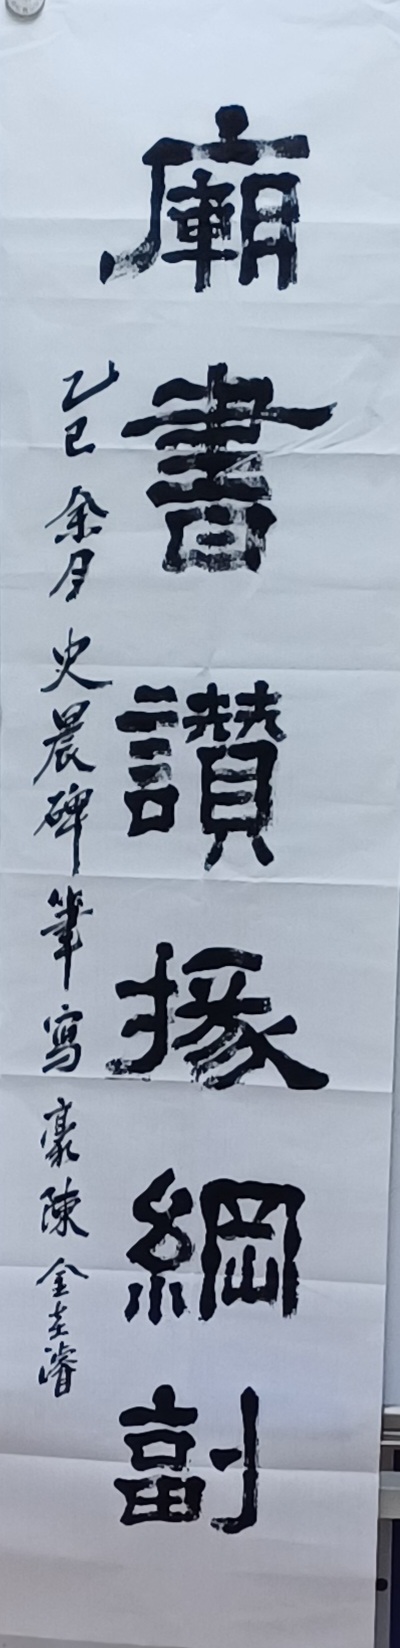 廟書讃掾綱副
乙巳余月史晨碑筆寫豪陳金在濬